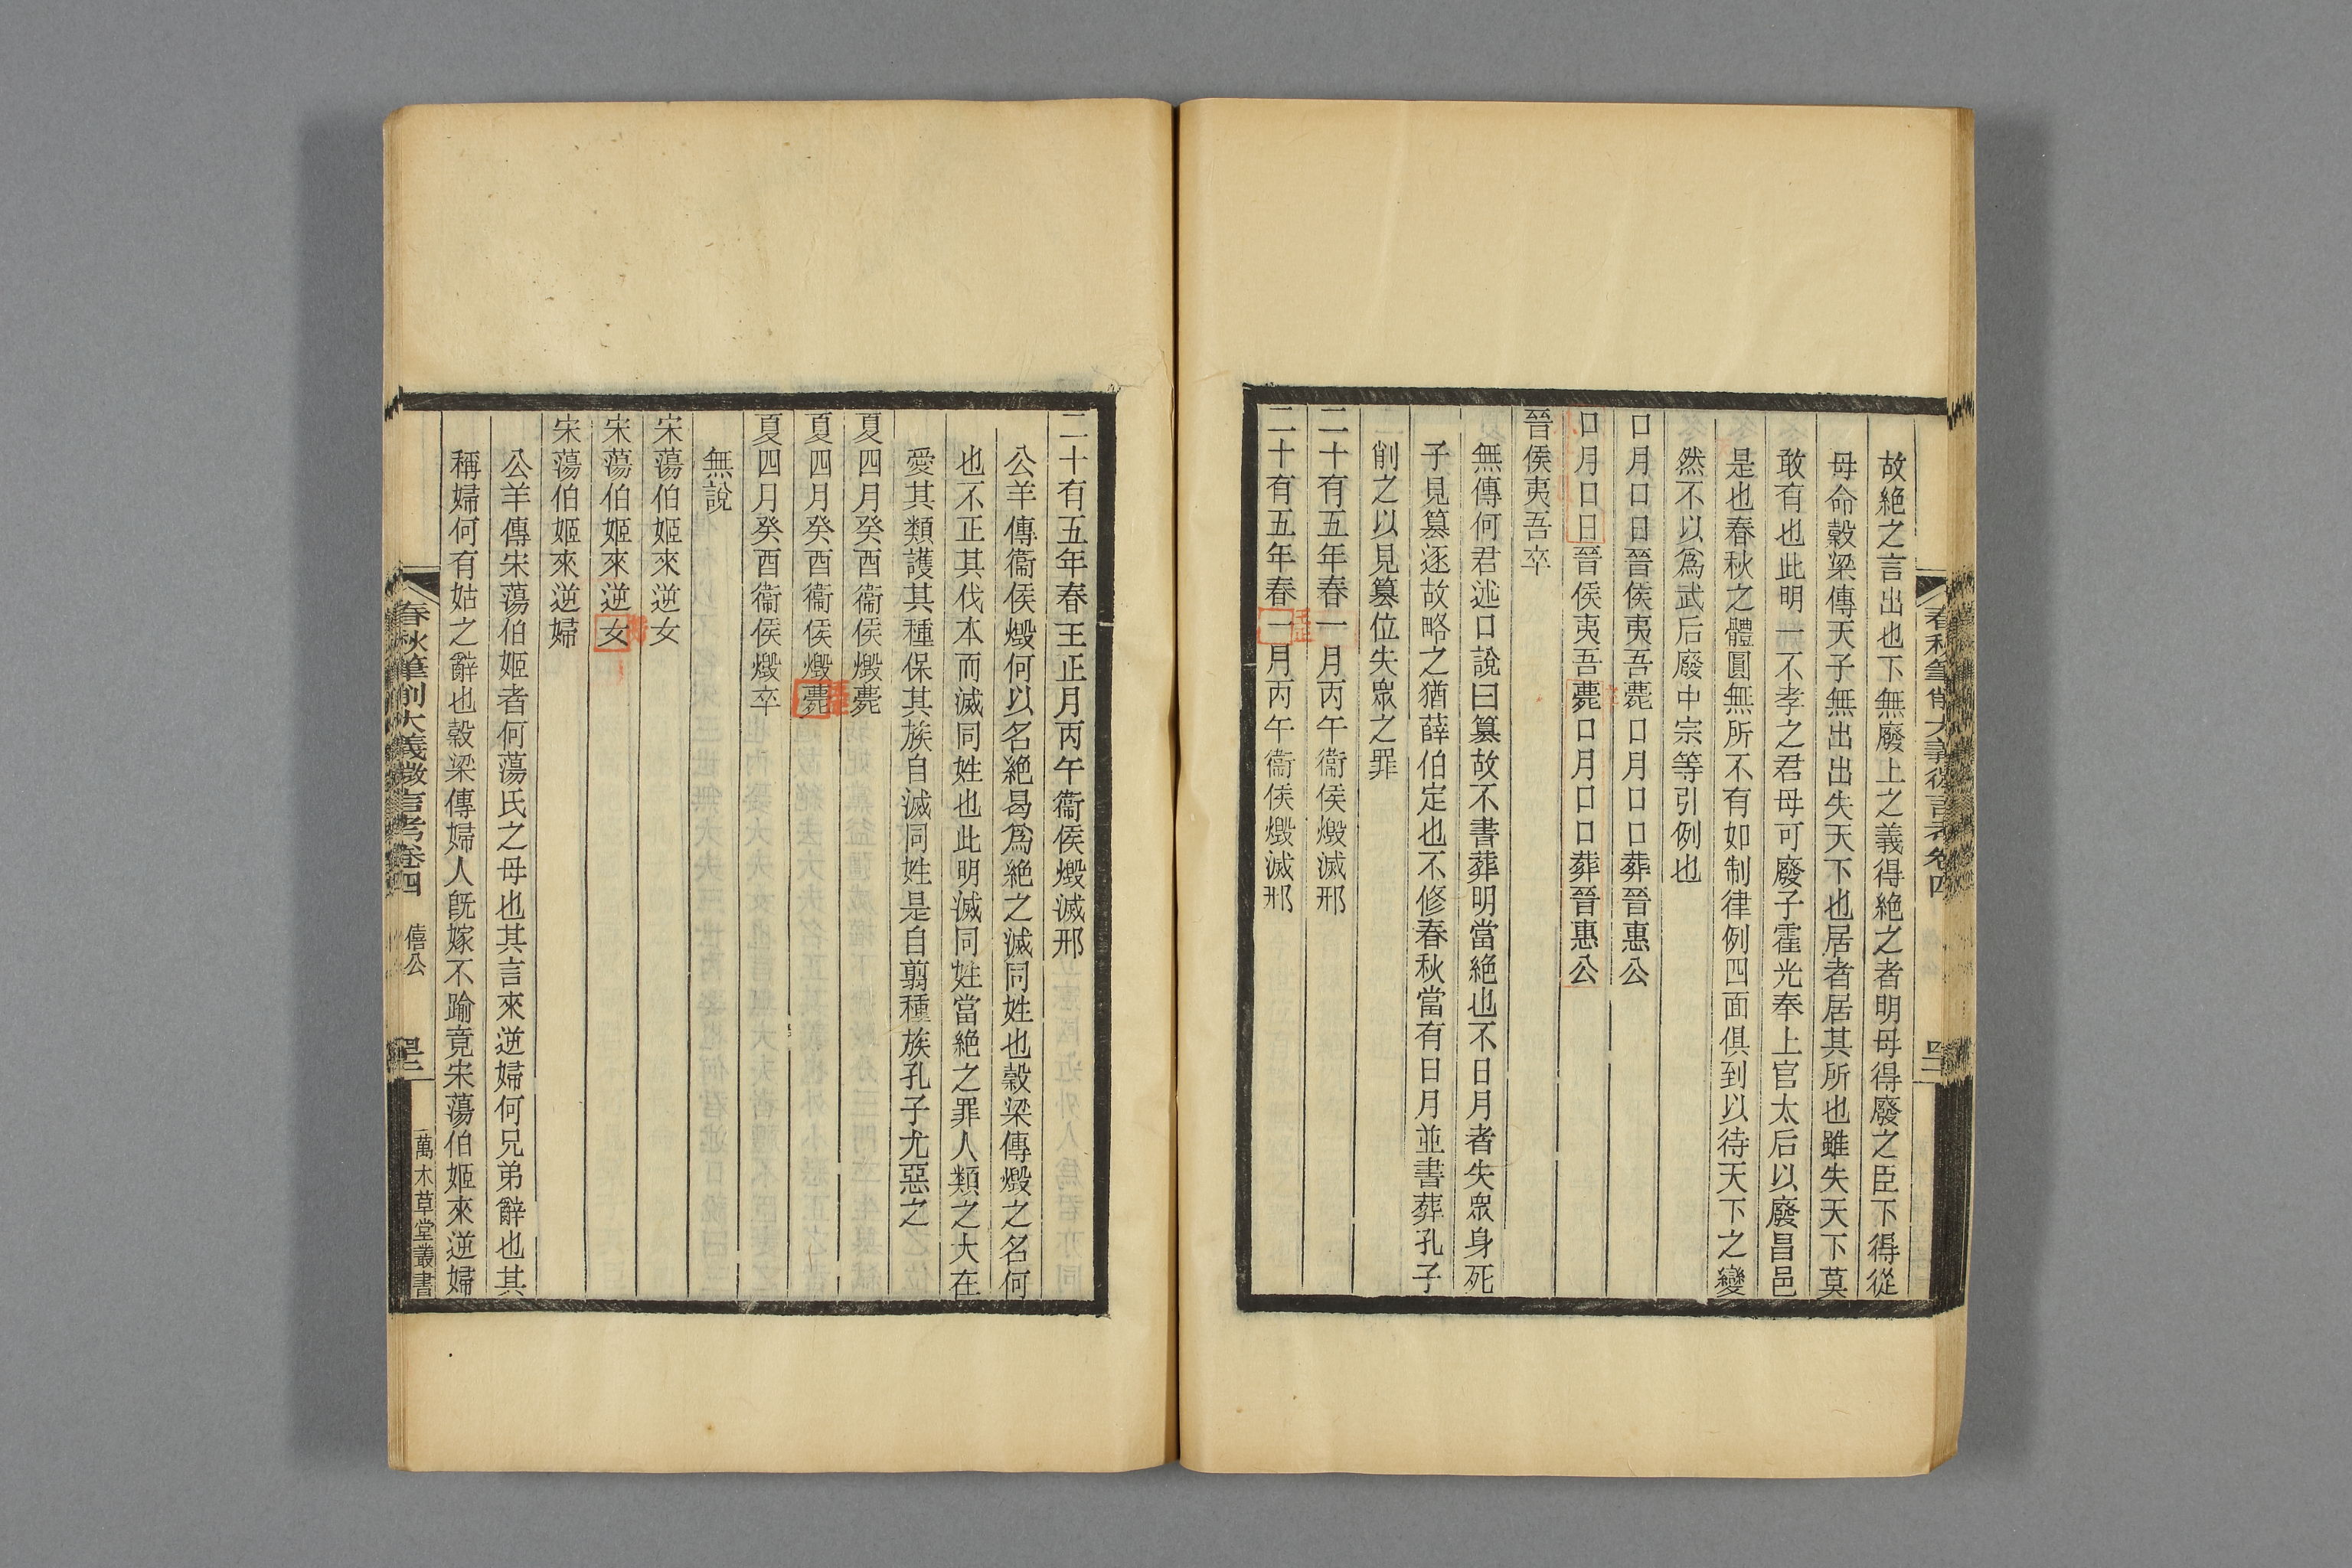 故絶之言出也下無廢上之義得絶之者明母得廢之臣下得從
母命穀梁傳天子無出出失天下也居者居其所也雖失天下莫
敢有也此明一不孝之君母可廢子霍光奉上官太后以廢昌邑
是也春秋之體圓無所不有如制律例四面俱到以待天下之變
然不以爲武后廢中宗等引例也
口月口日晉侯夷吾薨口月口口葬晉惠公
口月口日晉侯夷吾薨口月口口葬晉惠公
晉侯夷吾卒
無傳何君述口說曰篡故不書葬明當絶也不日月者失眾身死
子見篡逐故略之猶薛伯定也不修春秋當有日月並書葬孔子
削之以見篡位失眾之罪
二十有五年春一月丙午衞侯燬滅邢
二十有五年春一月丙午衞侯燬滅邢
二十有五年春王正月丙午衞侯燬滅邢
公羊傳衞侯燬何以名絶曷爲絶之滅同姓也穀梁傳燬之名何
也不正其伐本而滅同姓也此明滅同姓當絶之罪人類之大在
愛其類護其種保其族自滅同姓是自翦種族孔子尤惡之
夏四月癸酉衞侯燬薨
夏四月癸酉衞侯燬薨
夏四月癸酉衞侯燬卒
無說
宋蕩伯姬來逆女
宋蕩伯姬來逆女
宋蕩伯姬來逆婦
公羊傳宋蕩伯姬者何蕩氏之母也其言來逆婦何兄弟辭也其
稱婦何有姑之辭也穀梁傳婦人既嫁不踰竟宋蕩伯姬來逆婦
春秋筆削大義微言考卷四 僖公
萬木草堂叢書